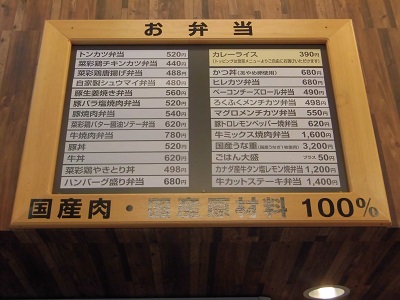 お弁当
トンカツ弁当 520円
菜彩鶏チキンカツ弁当 440円
菜彩鶏唐揚げ弁当 488円
自家製シュウマイ弁当 480円
豚生姜焼き弁当 560円
豚バラ塩焼肉弁当 540円
豚焼肉弁当 540円
菜彩鶏バター醤油ソテー弁当 620円
牛焼肉弁当 780円
豚丼 520円
牛丼 620円
菜彩鶏やきとり丼 498円
ハンバーグ盛り弁当 680円
カレーライス 390円
かつ丼 680円
ヒレカツ弁当 680円
ベーコンチーズロール弁当 490円
ろくふくメンチカツ弁当 498円
マグロメンチカツ弁当 550円
豚トロレモンペッパー焼弁当 620円
牛ミックス焼肉弁当 1,600円
国産うな重 3,200円
ごはん大盛 プラス50円
カナダ産牛タン塩レモン焼弁当 1,200円
牛カットステーキ弁当 1,400円
国産肉・国産原材料 100%